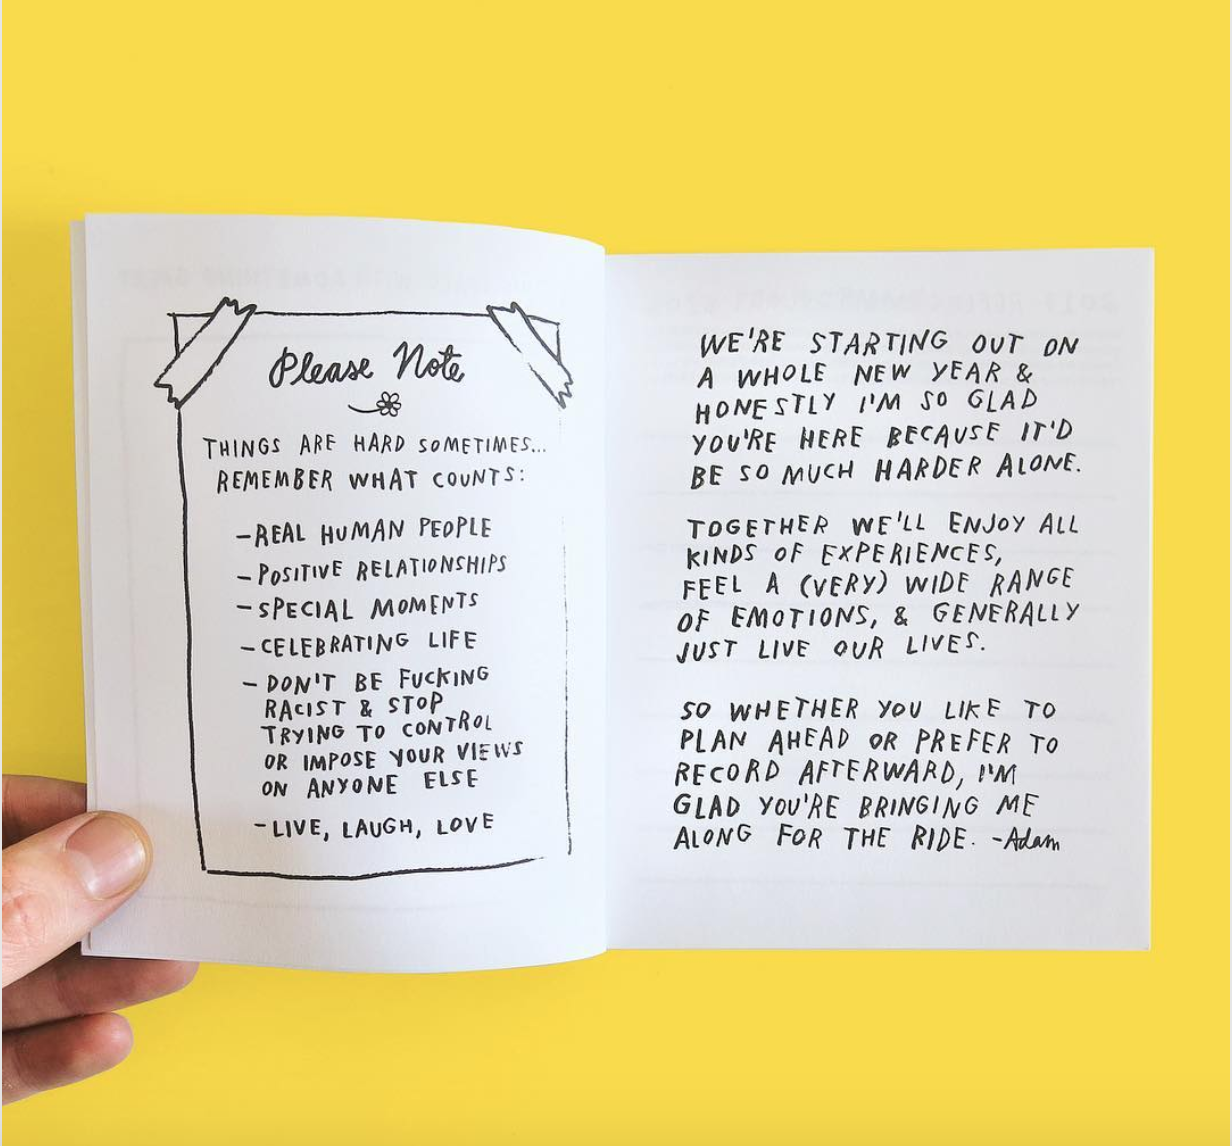 Please Note
THINGS ARE HARD SOMETIMES...
REMEMBER WHAT COUNTS:
-REAL HUMAN PEOPLE
-POSITIVE RELATIONSHIPS
-SPECIAL MOMENTS
-CELEBRATING LIFE
-DON'T BE FUCKING
RACIST & STOP
TRYING TO CONTROL
OR IMPOSE YOUR VIEWS
ON ANYONE ELSE
-LIVE, LAUGH, LOVE
WE'RE STARTING OUT ON
A WHOLE NEW YEAR &
HONESTLY I'M SO GLAD
YOU'RE HERE BECAUSE IT'D
BE SO MUCH HARDER ALONE.
TOGETHER WE'LL ENJOY ALL
KINDS OF EXPERIENCES,
FEEL A (VERY) WIDE RANGE
OF EMOTIONS, & GENERALLY
JUST LIVE OUR LIVES.
SO WHETHER YOU LIKE TO
PLAN AHEAD OR PREFER TO
RECORD AFTERWARD, I'M
GLAD YOU'RE BRINGING ME
ALONG FOR THE RIDE. -Adam